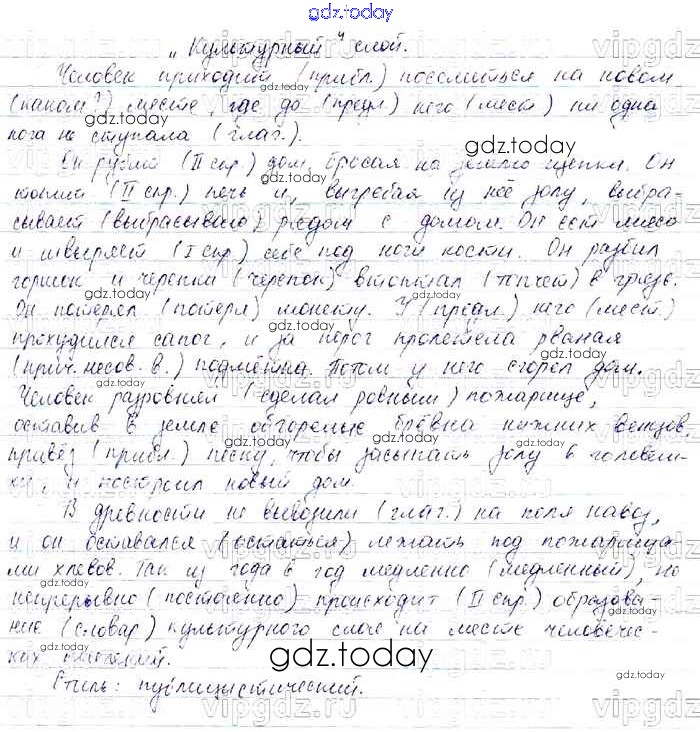 gdz.today
„Культурный" слой.
Человек приходит (прибл.) поселиться на новом
(каком?) месте, где до (предл.) него (мест) ни одна
нога не ступала (глаг.).
Он рубит (II спр.) дом, бросая на землю щепки. Он
топит (II спр.) печь и, выгребая из неё золу, выбра-
сывает (выбрасываю) рядом с домом. Он ест мясо
и швыряет (I спр.) себе под ноги кости. Он разбил
горшок и черепки (черепок) втоптал (топчет) в грязь.
Он потерял (потеря) монету. У (предл.) него (мест.)
прохудился сапог, и за порог пролетела рваная
(прич. несов. в.) подмётка. Потом у него сгорел дом.
Человек разровнял (сделал ровным) пожарище,
оставив в земле обгорелые брёвна нижних венцов,
привёз (прибл.) песку, чтобы засыпать золу и головеш-
ки, и построил новый дом.
В древности не вывозили (глаг.) на поля навоз,
и он оставался (остаться) лежать под пожарища-
ми хлевов. Так из года в год медленно (медленный), но
непрерывно (постоянно) происходит (II спр.) образова-
ние (словар) культурного слоя на месте человечес-
ких
Стиль: публицистический.
gdz.today